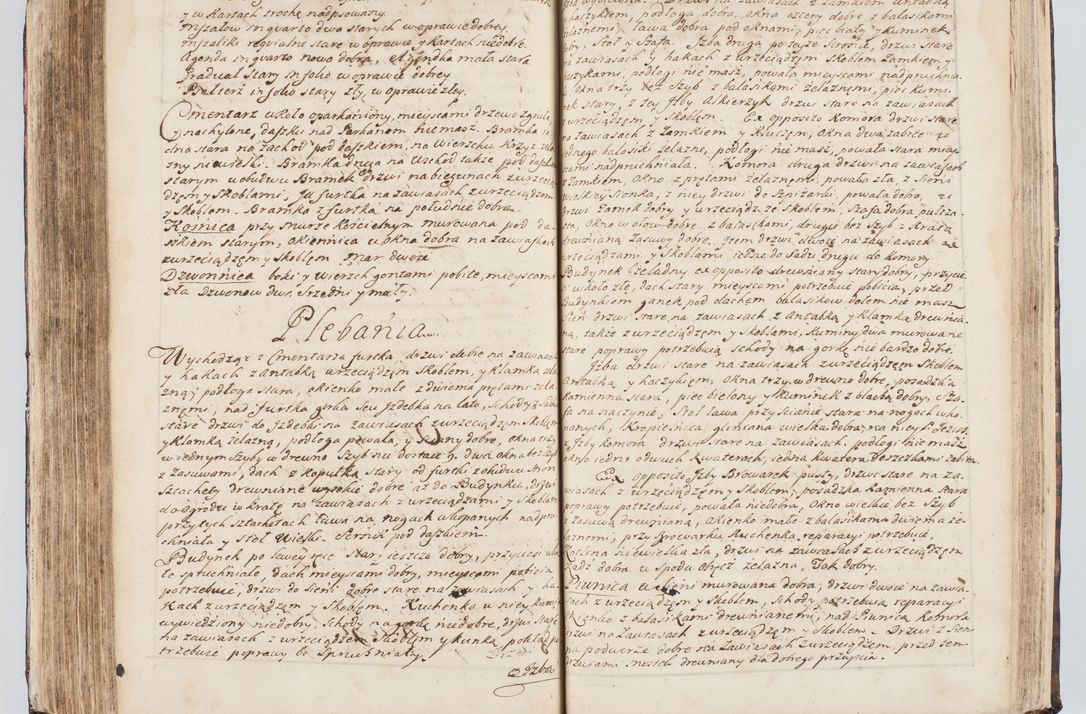 y w Kartach trochę nadpsowany.
Mszałow in quarto dwa starych w oprawie dobrey
Mszaliki requialne stare w oprawie, y Kartach niedobre.
Agenda in quarto nowa dobra, Agendka mała stara
Graduał Stary in folio w oprawie dobrey
Psałterz in folio stary zły, w oprawie złey.
Cmentarz wkoło oparkaniony, mieyscami drzewo zgniłe,
y nachylone, daszku nad Parkanem nie masz. Bramka ie
dna stara na zachod pod daszkiem, na wierzchu Krzyż żela
zny niewielki. Bramka druga na Wschod także pod daszkiem
starym u obudwu Bramek drzwi na biegunach z wrzecią
dzem y Skoblami, Ju furtka na zawiasach z wrzeciądzem
y Skoblem. Bramka z furtką na południe dobra.
Kosnica przy murze Kościelnym murowana pod da-
szkiem starym, okiennica u okna dobra na zawiasach
z wrzeciądzem y Skoblem mar dwoie
Dzwonnica boki y wierzch gontami pobite, mieyscami
zła Dzwonow dwa Srzedni y mały.
Plebania.
Wychodząc z Cmentarza furtka drzwi dobre na zawiasach
y hakach z antabką wrzeciądzem Skoblem, y Klamką żela
zną; podłoga stara, okienko małe z dwiema prętami żela
znemi, nad furtką gorka seu Izdebka na lato, schody z sadu
stare drzwi do Izdebki na zawiasach z wrzeciądzem Skoblem
y Klamką żelazną, podłoga powała, y sciany dobre, okna trzy
w iednym szyby w drewno Szyb nie dostaie 9. dwa okna bez szyb
z zasuwami, dach z Kopułką stary od furtki z obudwu stron
Sztachety drewniane wysokie dobre aż do Budynku, drzwi
do ogrodu w kratę na zawiasach z wrzeciądzami y skoblami
przy tych Sztachetach ława na nogach wkopanych nadpru
chniała y Stoł Wielki. Sernik pod daszkiem.
Budynek po lewey ręce Stary ieszcze dobry, przyciesi wko
ło spruchniałe, dach mieyscami dobry, mieyscami pobicia
potrzebuie, drzwi do Sieni dobre stare na zawiasach y ha
kach z wrzeciądzem y Skoblem. Kuchenka w niey Komin
wywiedziony niedobry, Schody na gorkę niedobre, drzwi stare
na zawiasach z wrzeciądzem Skoblem y Kunką, pokład po
trzebuie poprawy bo Spruchniały.
Izba
haczykiem, podłoga dobra, okna cztery dobre z balasikami
żelaznemi, ława dobra pod oknami, piec biały y kuminek
dobry, Stoł y Szafa. Izba druga po teyże Stronie, drzwi stare
na zawiasach y hakach z wrzeciądzem Skoblem Zamkiem y
haczykami, podłogi nie masz, powała mieyscami nadpruchnia
ła, okna trzy bez szyb z balasikami żelaznemi, piec Kumi-
nek stary, z tey Izby Alkierzyk drzwi stare na zawiasach
z wrzeciądzem y Skoblem. Ex opposito Komora drzwi stare
na zawiasach z Zamkiem y Kluczem, okna dwa zabite u
iednego balasiki żelazne, podłogi nie masz, powała stara mieys
cami nadpruchniała. Komora druga drzwi na zawiasach
z Zamkiem, okno z prętami żelaznemi, powała zła, z Sieni
wielkiey Sionka, z niey drzwi do Szpiżarki, powała dobra, u
drzwi Zamek dobry y wrzeciądz ze Skoblem, Szafa dobra pulcza
sta, okno w ołow dobre z balaskami, drugie bez szyb z Kratą
drewnianą zasuwy dobre, Item drzwi dwoie na zawiasach z
wrzeciądzami y Skoblami iedne do Sadu drugie do komory
Budynek Czeladny ex opposito drewniany stary dobry, przycie
si wkoło złe, dach stary mieyscami potrzebuie pobicia, przed
Budynkiem ganek pod dachem balasikow dołem nie masz
Sień drzwi stare na zawiasach z Antabką y Klamką drewnia
ną, także z wrzeciądzem y Skoblami, Kuminy dwa murowane
stare poprawy potrzebuią schody na gorkę nie bardzo dobre.
Izba drzwi stare na zawiasach z wrzeciądzem Skoblem
Antabką y haczykiem, okna trzy w drewno dobre, posadzka
kamienna stara, piec bielony y Kuminek z blachą dobry, Sza
fa na naczynie, Stoł ława przy scianie stare na nogach wko
panych, Kropielnica gliniana wielka dobra, na niey F. Jezus.
z Izby komora drzwi stare na zawiasach podłogi nie masz
okno iedno o dwuch Kwaterach, iedna kwatera deszczkami zabita.
Ex opposito Izby Browarek pusty, drzwi stare na za
wiasach z wrzeciądzem y Skoblem, posadzka Kamienna stara
poprawy potrzebuie, powała niedobra, okno wielkie bez Szyb
z zasuwą drewnianą, okienko małe z balasikama dwiema że-
laznemi, przy Browarku Kuchenka reparacyi potrzebuie,
niewielka zła, drzwi na zawiasach z wrzeciądzem
Kadź dobra w spodu obręcz żelazna, Tok dobry.
Piwnica w Sieni murowana dobra, drzwi dwoie na zawia-
sach z wrzeciądzem y Skoblem, Schody potrzebuią reparacyi
okienko z balasikami drewnianemi, nad Piwnicą Komora
drzwi na zawiasach z wrzeciądzem y Skoblem. Drzwi z Sieni
na podworze dobre na zawiasach z wrzeciądzem, przed temi
drzwiami mostek drewniany dla dobrego przeyscia.